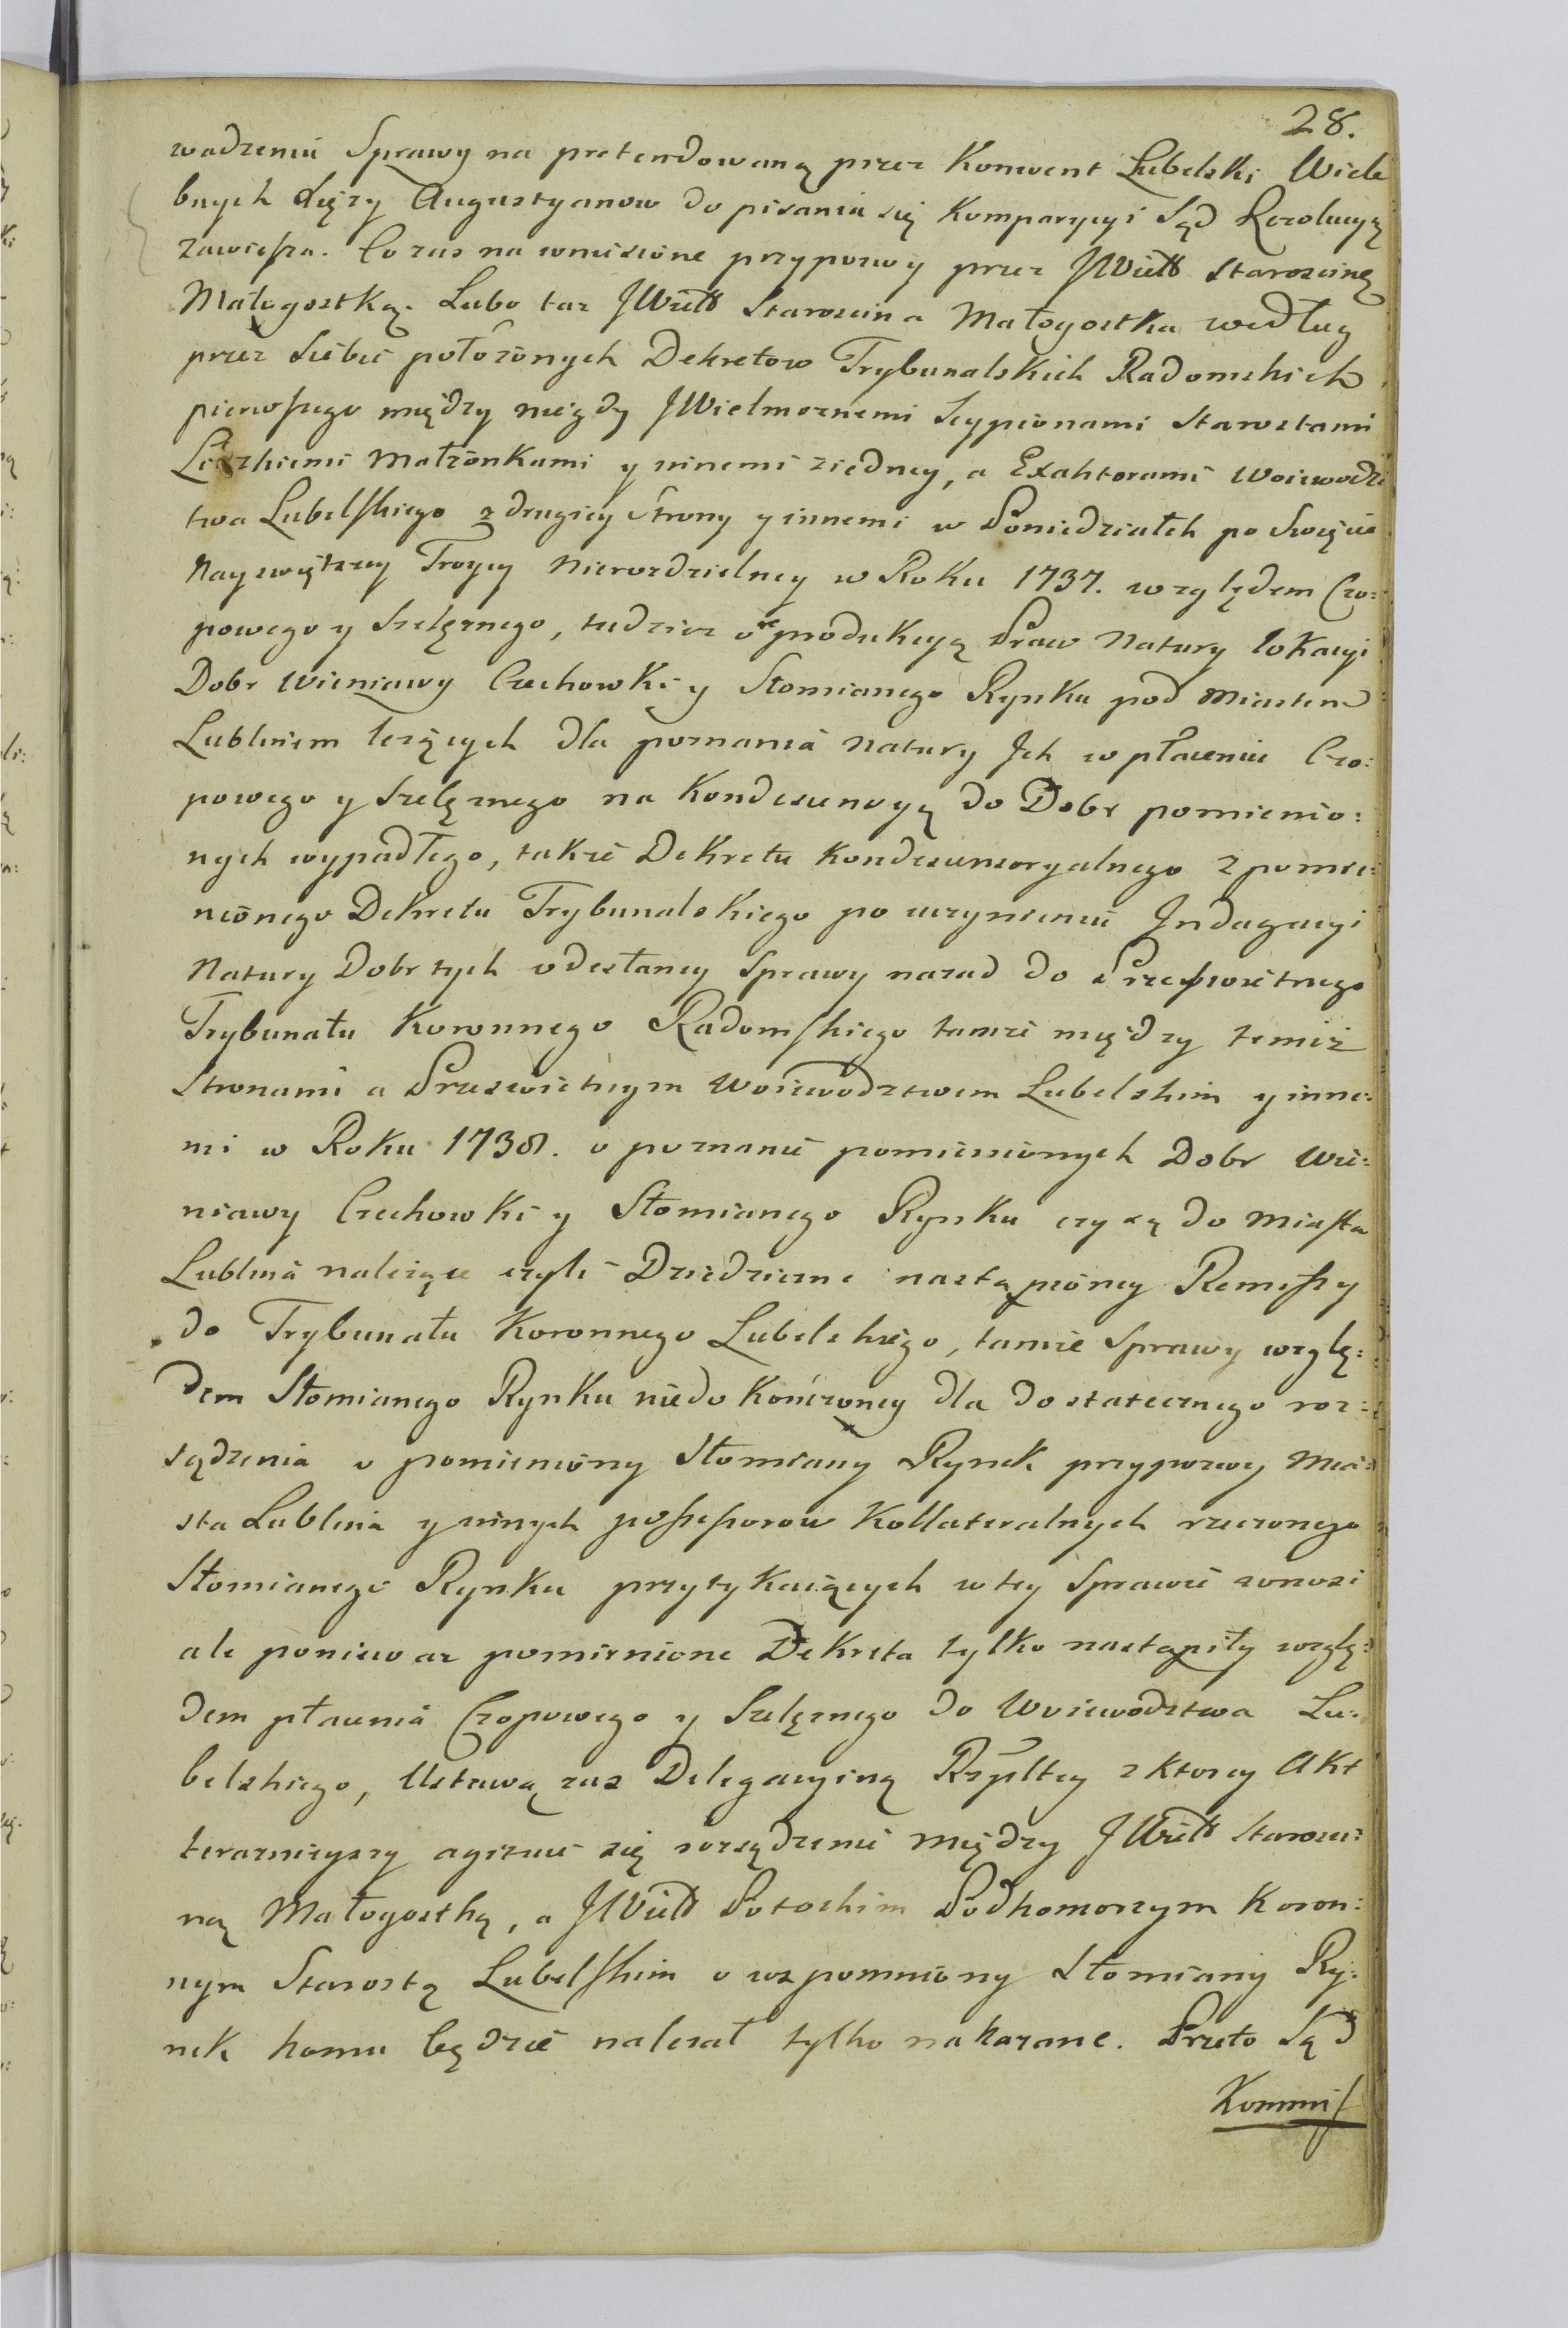 28.
wadzeniu Sprawy na pretendowaną przez Konwent Lubelski Wiele
bnych Xięzy Augustyanow do pisania się Komparycyi Sąd Rezolucyą
zawiesza. Co zas na wniesione przypozwy przez JWielł Staroscinę
Małogostką. Lubo taz JWielł Staroscina Małogostka według
przez Siebie położonych Dekretow Trybunalskich Radomskich
pierwszego między niegdy JWielmoznemi Scypionami Starostami
Lidzkiemi Małżonkami y innemi ziedney, a Exaktorami Woiewodz
twa Lubelskiego z drugiey Strony y innemi w Poniedziałek po Swięcie
Nayswiętszey Troycy Nierozdzielney w Roku 1737. względem Czo:
powego y Szelęznego, tudziez o reprodukcyą Praw Natury lokacyi
Dobr Wieniawy Czechowki y Słomianego Rynku pod Miastem
Lublinem lezących dla poznania natury Ich w płaceniu Czo:
powego y Szelęznego na Kondescensyą do Dobr pomienio:
nych wypadłego, także Dekretu Kondescensoryalnego z pomie:
nionego Dekretu Trybunalskiego po uczynieniu Indagacyi
Natury Dobr tych odesłaney Sprawy nazad do Przeswietnego
Trybunału Koronnego Radomskiego tamże między temiż
Stronami a Przeswietnym Woiewodztwem Lubelskim y inne:
mi w Roku 1738. o poznanie pomienionych Dobr Wie:
niawy Czechowki y Słomianego Rynku czy są do Miasta
Lublina należące czyli Dziedziczne nastąpioney Remissy
do Trybunału Koronnego Lubelskiego, tamże Sprawy wzglę:
dem Słomianego Rynku niedokończoney dla dostatecznego roz:
sądzenia o pomieniony Słomiany Rynek przypozwy Mia:
sta Lublina y innych possessorow Kollateralnych rzeczonego
Słomianego Rynku przytykaiących w tey Sprawie wnosi
ale poniewaz pomienione Dekreta tylko nastąpiły wzglę:
dem płacenia Czopowego y Szelęznego do Woiewodztwa Lu:
belskiego, Ustawą zas Delegacyiną Rzpltey z ktorey Akt
terazniejszy agituie się rozsądzenie między JWielł Starosci:
ną Małogostką, a JWielł Potockim Podkomorzym Koron:
nym Starostą Lubelskim o wspomniony Słomiany Ry:
nek komu będzie nalezał tylko nakazane. Przeto Sąd
Kommis